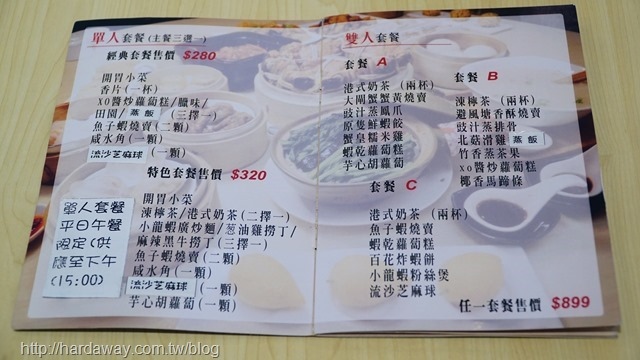 單人套餐(主餐三選一)
經典套餐售價$280
開胃小菜
香片(一杯)
xo醬炒蘿蔔糕/臘味/
田園/蒸飯(三擇一)
魚子蝦燒賣(二顆)
咸水角(一顆)
流沙芝麻球(一顆)
特色套餐售價$320
開胃小菜
涷檸茶/港式奶茶(二擇一)
小龍蝦廣炒麵/葱油雞撈丁/
麻辣黑牛撈丁(三擇一)
魚子蝦燒賣(二顆)
咸水角(一顆)
流沙芝麻球(一顆)
芋心胡蘿蔔(一顆)
單人套餐
平日午餐
限定(供
應至下午
(15:00)
雙人套餐
套餐A
港式奶茶(兩杯)
大閘蟹蟹黃燒賣
豉汁蒸鳳爪
原隻鮮蝦餃
蟹皇糯米雞
蝦乾蘿蔔糕
芋心胡蘿蔔
套餐B
涷檸茶(兩杯)
避風塘香酥燒賣
豉汁蒸排骨
北菇滑雞蒸飯
竹香蒸茶果
xo醬炒蘿蔔糕
椰香馬蹄條
套餐C
港式奶茶(兩杯)
魚子蝦燒賣
蝦乾蘿蔔糕
百花炸蝦餅
小龍蝦粉絲煲
流沙芝麻球
任一套餐售價$899
http://hardaway.com.tw/blog